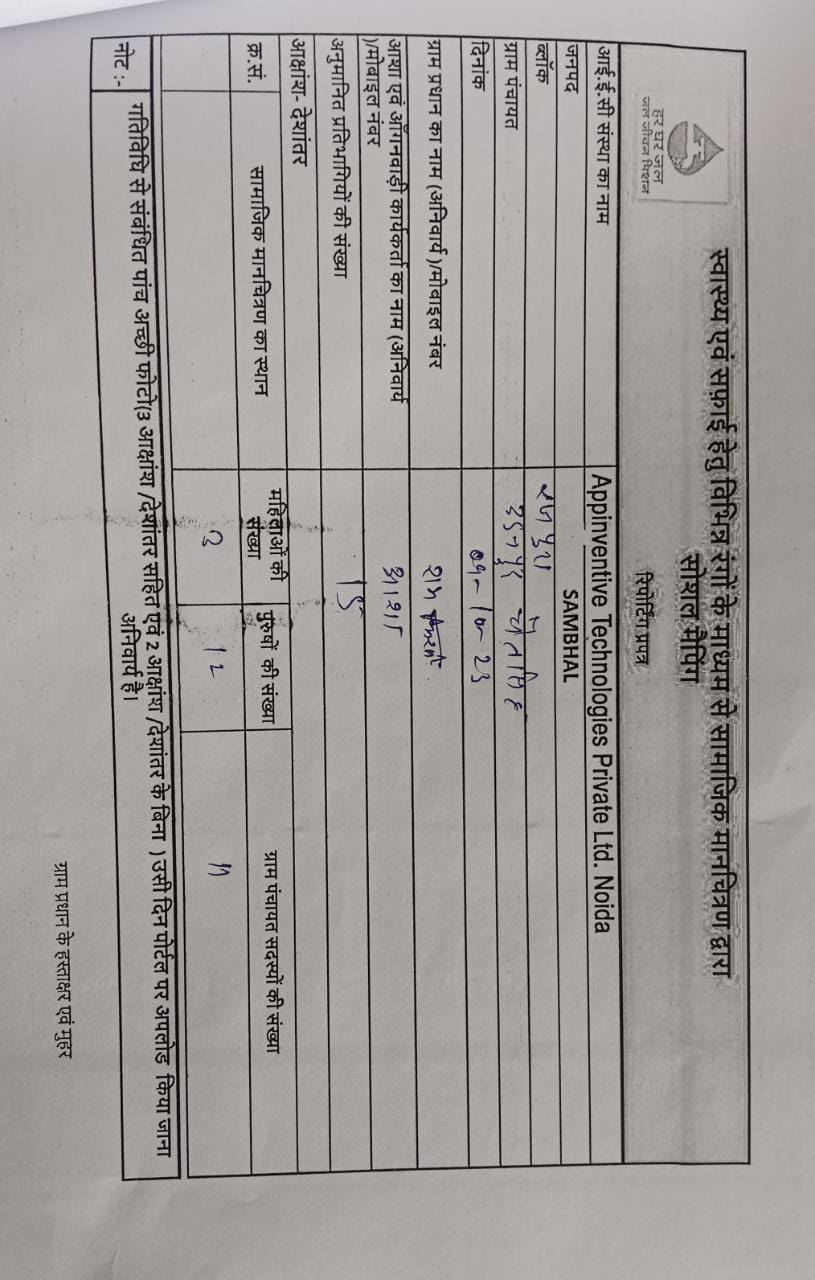 हर घर जल
जल जीवन मिशन
स्वास्थ्य एवं सफ़ाई हेतु विभिन्न रंगों के माध्यम से सामाजिक मानचित्रण द्वारा
सोशल मैपिंग
रिपोर्टिंग प्रपत्र
आई.ई.सी संस्था का नाम Appinventive Technologies Private Ltd. Noida
जनपद SAMBHAL
ब्लॉक रजपुरा
ग्राम पंचायत
दिनांक 09-10-23
ग्राम प्रधान का नाम (अनिवार्य )/मोबाइल नंबर राम
आशा एवं आँगनवाड़ी कार्यकर्ता का नाम (अनिवार्य आशा
)/मोबाइल नंबर
अनुमानित प्रतिभागियों की संख्या 15
आक्षांश- देशांतर
क्र.सं. सामाजिक मानचित्रण का स्थान महिलाओं की संख्या पुरुषों की संख्या ग्राम पंचायत सदस्यों की संख्या
3 12
नोट :- गतिविधि से संबंधित पांच अच्छी फोटो(3 आक्षांश /देशांतर सहित एवं 2 आक्षांश /देशांतर के बिना )उसी दिन पोर्टल पर अपलोड किया जाना
अनिवार्य है।
ग्राम प्रधान के हस्ताक्षर एवं मुहर